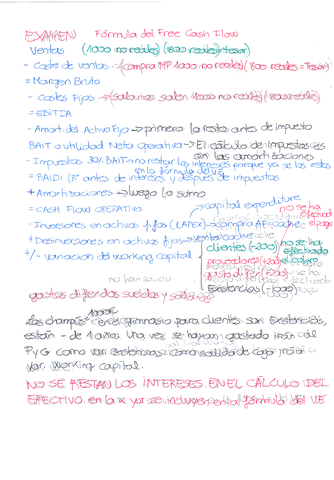 EXAMEN Fórmula del Free Cash Flow
Ventas (1000 no reales) (800 reales = tesor)
- Coste de ventas → (compra MP 1000 no reales) (800 reales = Tesor)
= Margen Bruto
- Costes Fijos → (salarios salen 1000 no reales)
= EBITDA
- Amort. del Activo Fijo → primero la resto antes de impuesto
BAIT o utilidad Neta Operativa → El cálculo de Impuestos es sin las amortizaciones
- Impuestos 30% BAIT → no restar los intereses porque ya se los resta en la fórmula del
= BAIDI (Bº antes de intereses y después de impuestos
+ Amortizaciones → luego lo sumo
= CASH FLOW OPERATIVO
→ capital expenditure
- Inversiones en activos fijos (CAPEX) → compra AF = cache
+ Desinversiones en activos fijos → venta = cache
+/- variación del working capital
clientes (-200) no se ha efectuado el cobro
proveedores (+200) no se ha efectuado el pago
gasto difer (+200)
existencias (-1000)
no han salido
gastos diferidos sueldos y salarios
Los champús en el gimnasio para clientes son existencias,
están - de 1 año. Una vez se hayan gastado irán al
PyG como var existencias como salida de caja
var. Working capital.
NO SE RESTAN LOS INTERESES EN EL CÁLCULO DEL
EFECTIVO en la K ya se incluyen en la fórmula del VE